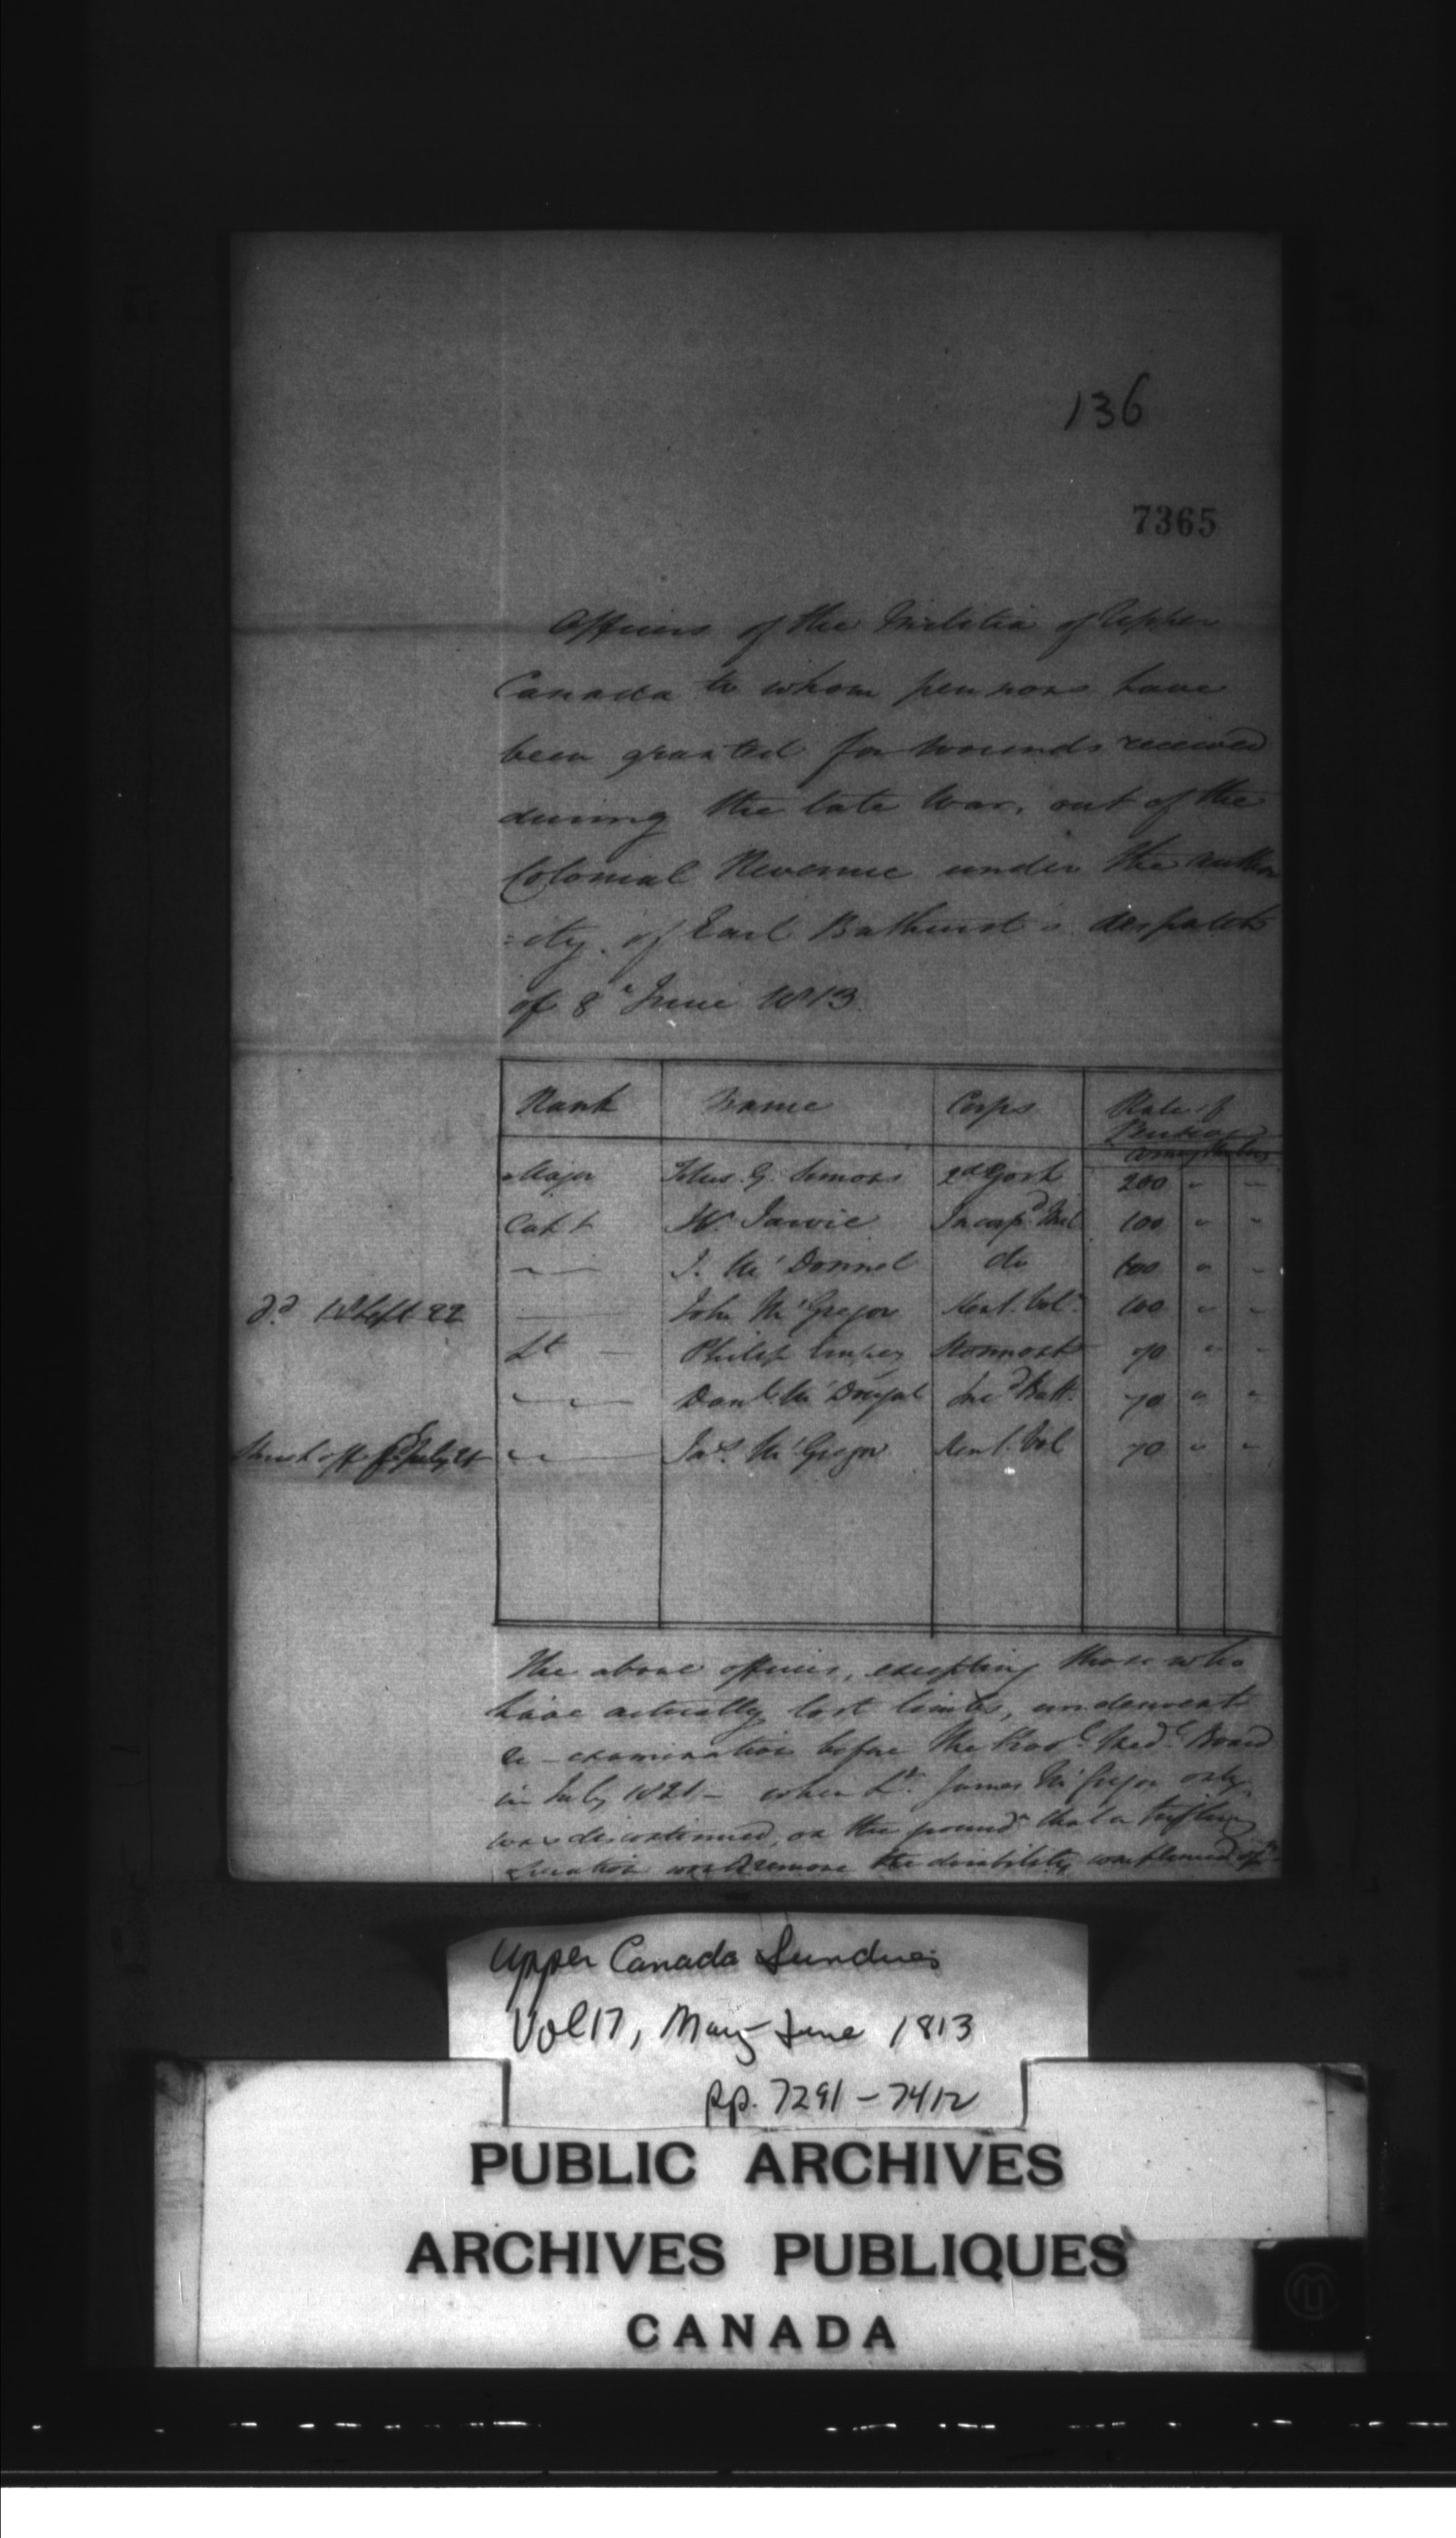 136
7365
Officers of the Militia of Upper
Canada to whom pensions have
been granted for wounds received
during the late War, out of the
Colonial Revenue under the author
=ity of Earl Bathurst's despatch
of 8th June 1813.
Rank Name Corps Rate of Pension
Major Titus G. Simons 2d York 200 " "
Capt W. Jarvie Incorpd Mil 100 " "
— J. McDonnel do 100 " "
dd 18 Sept 22 — John McGregor Kent. Vols 100 " "
Lt — Philip Empey Stormont 70 " "
— Danl McDougal Incd Batt. 70 " "
Struck off July 21 — Jas McGregor Kent. Vol 70 " "
The above officers, excepting those who
have actually lost limbs, underwent
re-examination before the Provl Medl Board
in July 1821 — when Lt James McGregor only
was discontinued, on the ground that a trifling
operation would remove the disability complained of
Upper Canada Sundries
Vol 17, May–June 1813
pp. 7291–7412
PUBLIC ARCHIVES
ARCHIVES PUBLIQUES
CANADA